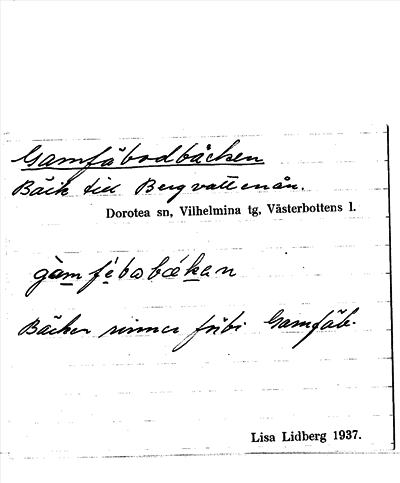 Gamfäbodbäcken
Bäck till Bergvattenån.
Dorotea sn, Vilhelmina tg, Västerbottens l.
gàmfébobǽkan
Bäcken rinner förbi Gamfäb.
Lisa Lidberg 1937.